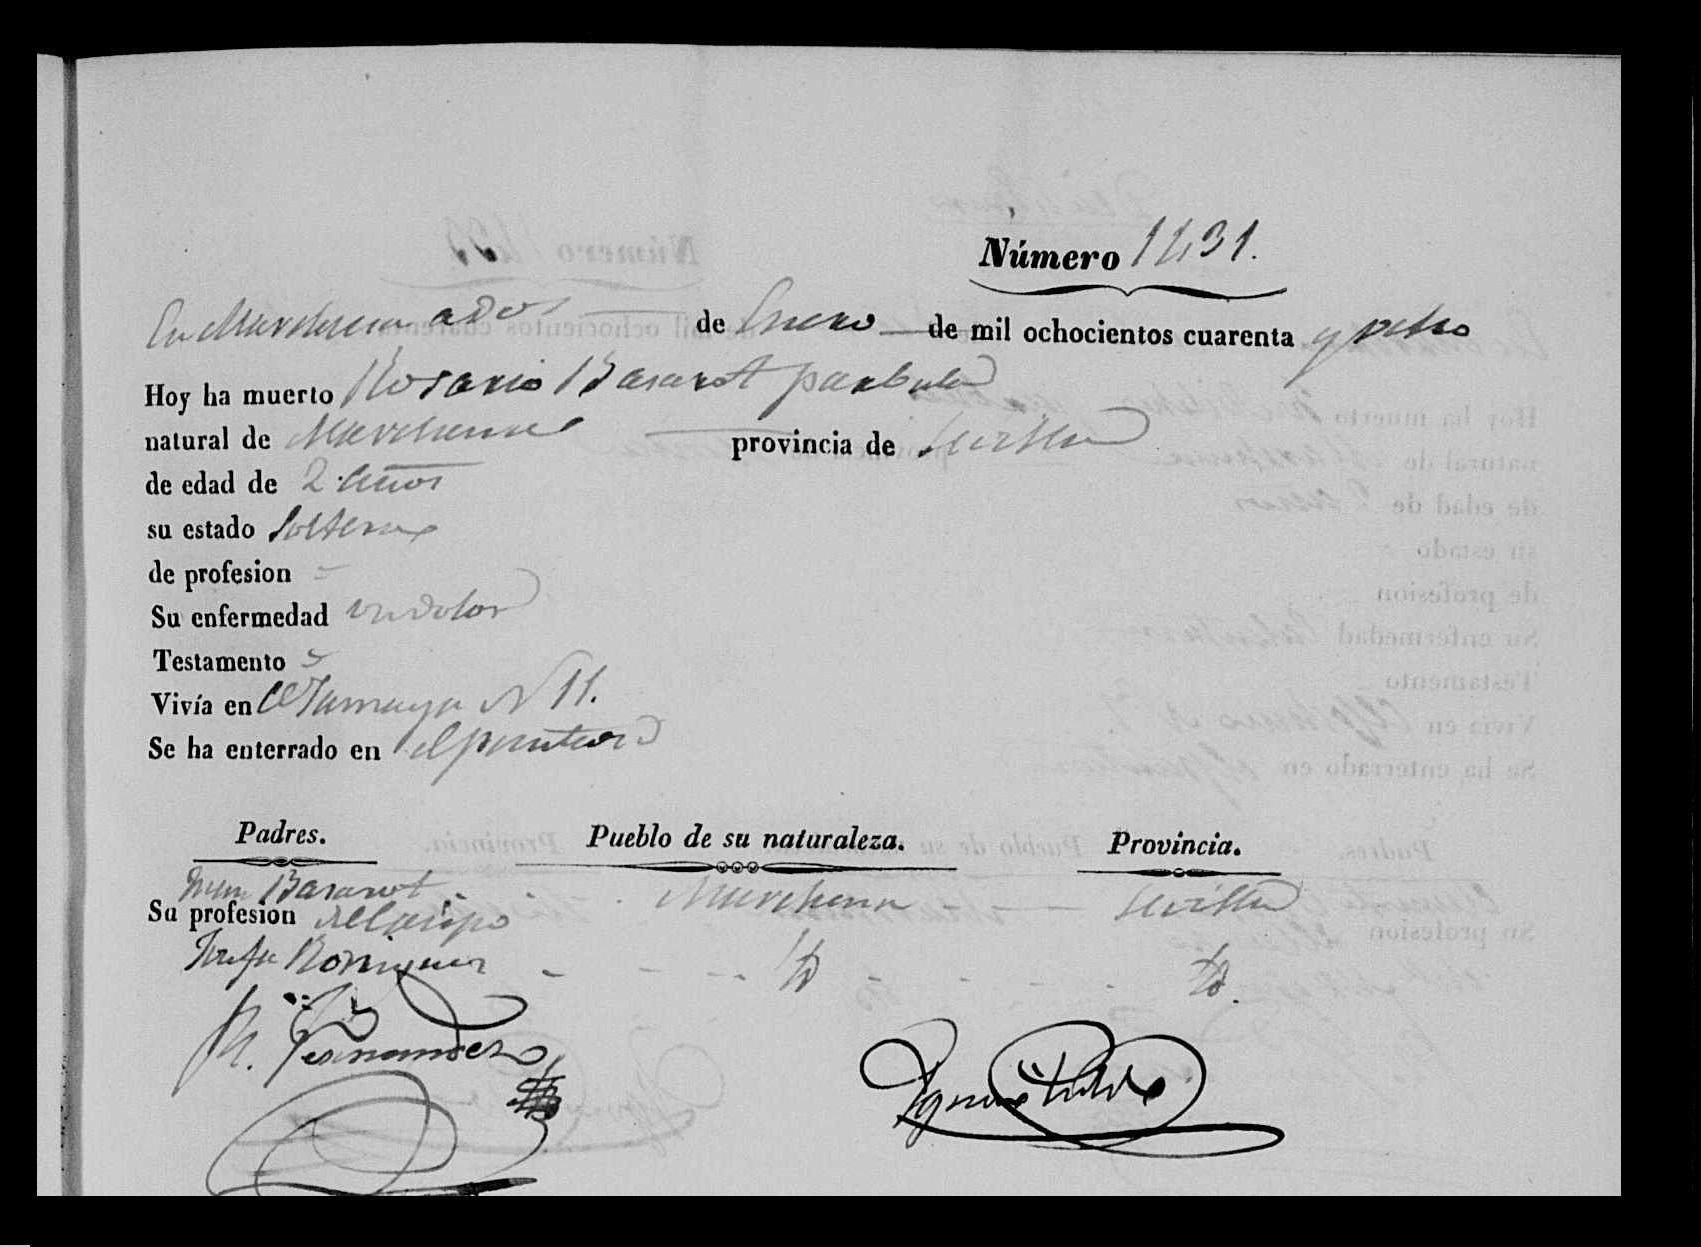 Número 1431.
En Marchena a dos de Enero de mil ochocientos cuarenta y ocho
Hoy ha muerto Rosario Basarot parbula
natural de Marchena provincia de Sevilla
de edad de 2 años
su estado Soltera
de profesion
Su enfermedad un dolor
Testamento
Vivía en Ce Tamaya N 11.
Se ha enterrado en el panteon
Padres. Pueblo de su naturaleza. Provincia.
Juan Basarot Marchena Sevilla
Su profesion del campo
Josefa Rodriguez
M. Fernandez
Ignacio